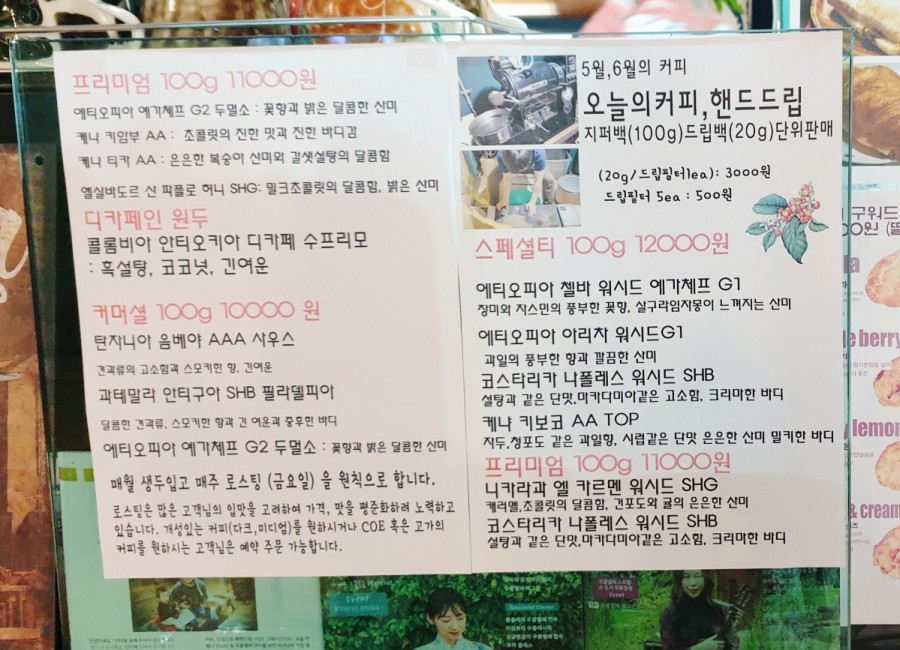 프리미엄 100g 11000원
에티오피아 예가체프 G2 두멀소 : 꽃향과 밝은 달콤한 산미
케냐 키암부 AA : 초콜릿의 진한 맛과 진한 바디감
케냐 티카 AA : 은은한 복숭아 산미와 갈색설탕의 달콤함
엘살바도르 산 파블로 허니 SHG: 밀크초콜릿의 달콤함, 밝은 산미
디카페인 원두
콜롬비아 안티오키아 디카페 수프리모
: 흑설탕, 코코넛, 긴여운
커머셜 100g 10000 원
탄자니아 음베야 AAA 사우스
견과류의 고소함과 스모키한 향, 긴여운
과테말라 안티구아 SHB 필라델피아
달콤한 견과류, 스모키한 향과 긴 여운과 중후한 바디
에티오피아 예가체프 G2 두멀소 : 꽃향과 밝은 달콤한 산미
매월 생두입고 매주 로스팅 (금요일) 을 원칙으로 합니다.
로스팅은 많은 고객님의 입맛을 고려하여 가격, 맛을 평준화하려 노력하고
있습니다. 개성있는 커피(다크,미디엄)를 원하시거나 COE 혹은 고가의
커피를 원하시는 고객님은 예약 주문 가능합니다.
5월,6월의 커피
오늘의커피,핸드드립
지퍼백(100g)드립백(20g)단위판매
(20g/드립필터1ea): 3000원
드립필터 5ea : 500원
스페셜티 100g 12000원
에티오피아 첼바 워시드 예가체프 G1
장미와 자스민의 풍부한 꽃향, 살구라임자몽이 느껴지는 산미
에티오피아 아리차 워시드G1
과일의 풍부한 향과 깔끔한 산미
코스타리카 나폴레스 워시드 SHB
설탕과 같은 단맛,마카다미아같은 고소함, 크리미한 바디
케냐 키보코 AA TOP
자두,청포도 같은 과일향, 시럽같은 단맛 은은한 산미 밀키한 바디
프리미엄 100g 11000원
니카라과 엘 카르멘 워시드 SHG
캐러멜,초콜릿의 달콤함, 건포도와 귤의 은은한 산미
코스타리카 나폴레스 워시드 SHB
설탕과 같은 단맛,마카다미아같은 고소함, 크리미한 바디
구워드
berry
lemon
& cream